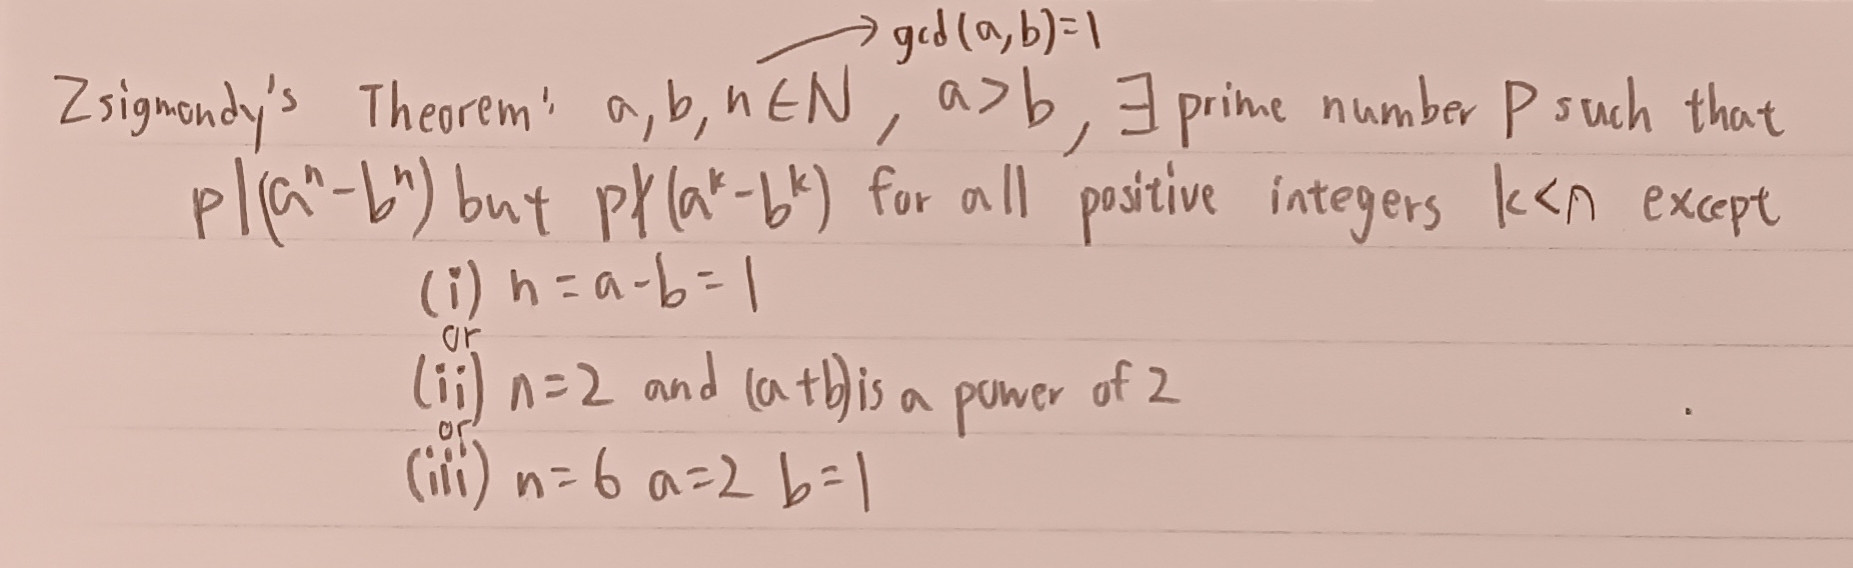 → gcd(a,b)=1
Zsigmondy's Theorem: a,b,n∈N, a>b, ∃ prime number P such that
p|(aⁿ-bⁿ) but p∤(aᵏ-bᵏ) for all positive integers k<n except
(i) n=a-b=1
or
(ii) n=2 and (a+b) is a power of 2
or
(iii) n=6 a=2 b=1